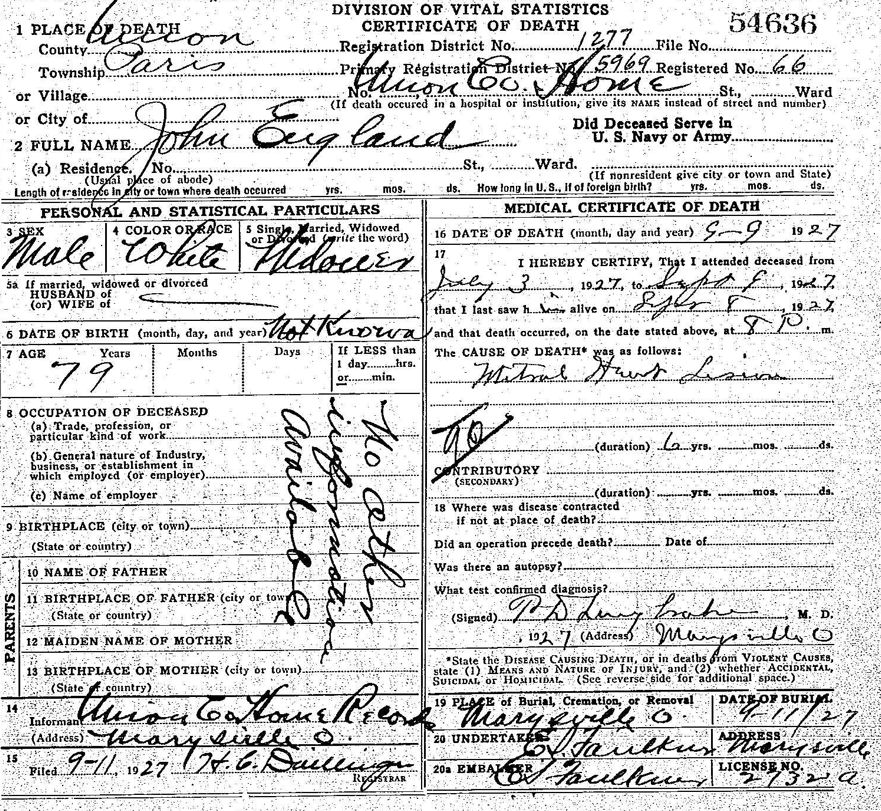 DIVISION OF VITAL STATISTICS
CERTIFICATE OF DEATH
54636
1 PLACE OF DEATH
County Union
Registration District No. 1277 File No.
Township Paris
Primary Registration District No. 5969 Registered No. 66
or Village
No. Union Co. Home St., Ward
(If death occured in a hospital or institution, give its NAME instead of street and number)
or City of
2 FULL NAME John England
Did Deceased Serve in
U. S. Navy or Army
(a) Residence. No. St., Ward.
(Usual place of abode)
(If nonresident give city or town and State)
Length of residence in city or town where death occurred yrs. mos. ds. How long in U. S., if of foreign birth? yrs. mos. ds.
PERSONAL AND STATISTICAL PARTICULARS
3 SEX
Male
4 COLOR OR RACE
White
5 Single, Married, Widowed
or Divorced (write the word)
Widower
5a If married, widowed or divorced
HUSBAND of
(or) WIFE of
6 DATE OF BIRTH (month, day, and year) Not Known
7 AGE Years Months Days
79
If LESS than
1 day hrs.
or min.
8 OCCUPATION OF DECEASED
(a) Trade, profession, or
particular kind of work
(b) General nature of Industry,
business, or establishment in
which employed (or employer)
(c) Name of employer
9 BIRTHPLACE (city or town)
(State or country)
No other
information
available
PARENTS
10 NAME OF FATHER
11 BIRTHPLACE OF FATHER (city or town)
(State or country)
12 MAIDEN NAME OF MOTHER
13 BIRTHPLACE OF MOTHER (city or town)
(State or country)
14
Informant Union Co Home Records
(Address) Marysville O.
15
Filed 9-11, 1927 H. C.
REGISTRAR
MEDICAL CERTIFICATE OF DEATH
16 DATE OF DEATH (month, day and year) 9-9 1927
17
I HEREBY CERTIFY, That I attended deceased from
July 3, 1927, to Sept 9, 1927,
that I last saw him alive on Sept 8, 1927,
and that death occurred, on the date stated above, at 8 P. m.
The CAUSE OF DEATH* was as follows:
Mitral Heart Lesion
90
(duration) 6 yrs. mos. ds.
CONTRIBUTORY
(SECONDARY)
(duration) yrs. mos. ds.
18 Where was disease contracted
if not at place of death?
Did an operation precede death? Date of
Was there an autopsy?
What test confirmed diagnosis?
(Signed) P D Longbrake M. D.
, 1927 (Address) Marysville O
*State the DISEASE CAUSING DEATH, or in deaths from VIOLENT CAUSES,
state (1) MEANS AND NATURE OF INJURY, and (2) whether ACCIDENTAL,
SUICIDAL or HOMICIDAL. (See reverse side for additional space.)
19 PLACE of Burial, Cremation, or Removal
Marysville O.
DATE OF BURIAL
9/11/27
20 UNDERTAKER
E J Faulkner
ADDRESS
Marysville
20a EMBALMER
E J Faulkner
LICENSE NO.
2732 a.